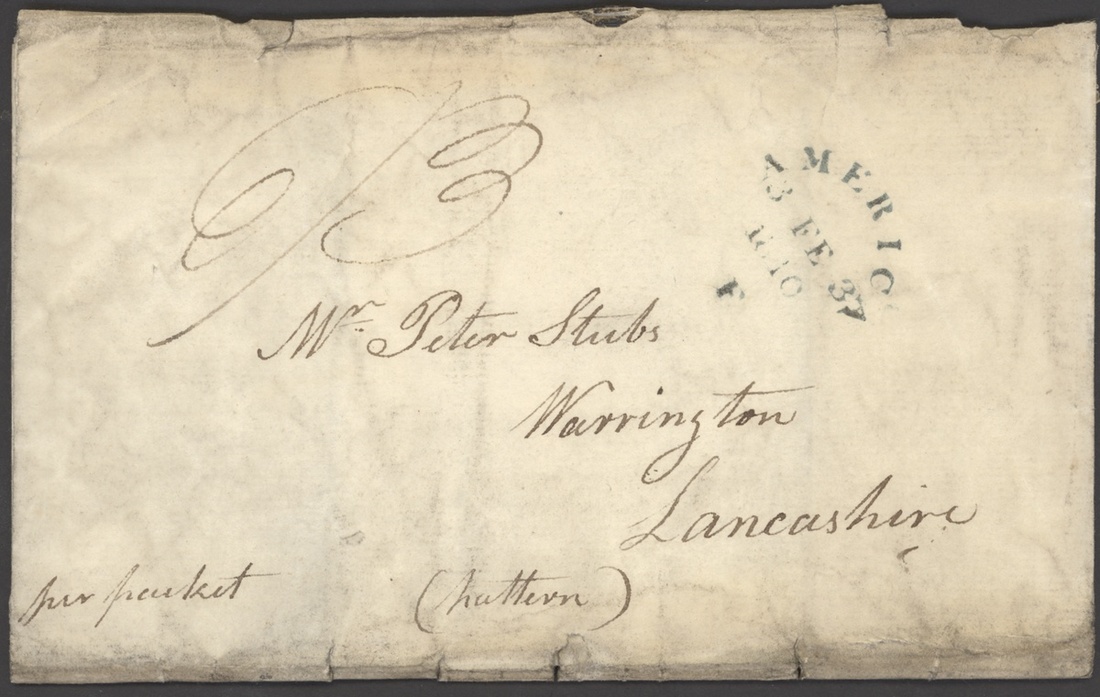 AMERIC
FE
1810
F 37
Mr Peter Stubs
Warrington
Lancashire
per packet (pattern)